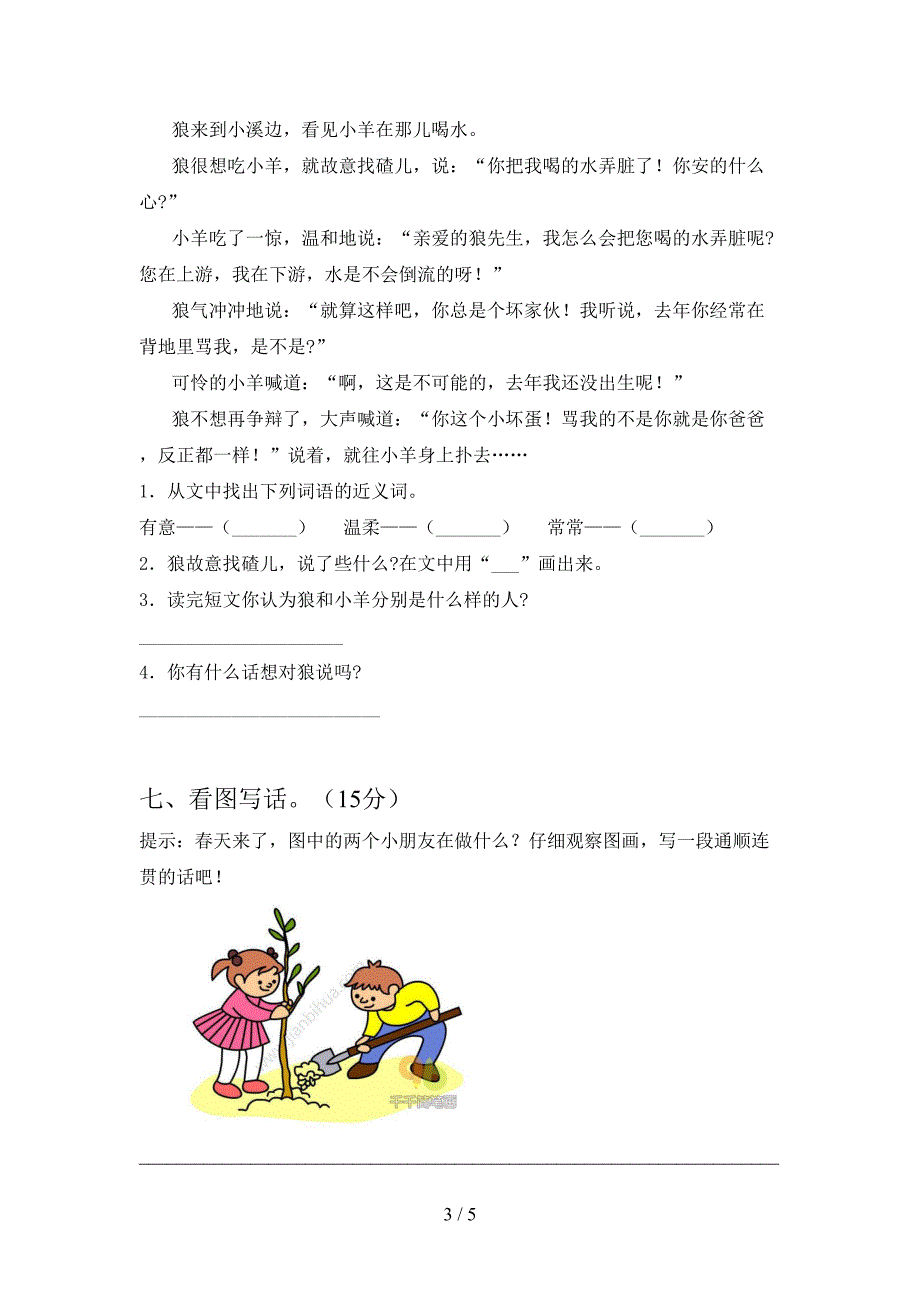 狼来到小溪边，看见小羊在那儿喝水。
狼很想吃小羊，就故意找碴儿，说：“你把我喝的水弄脏了！你安的什么
心?”
小羊吃了一惊，温和地说：“亲爱的狼先生，我怎么会把您喝的水弄脏呢?
您在上游，我在下游，水是不会倒流的呀！”
狼气冲冲地说：“就算这样吧，你总是个坏家伙！我听说，去年你经常在
背地里骂我，是不是?”
可怜的小羊喊道：“啊，这是不可能的，去年我还没出生呢！”
狼不想再争辩了，大声喊道：“你这个小坏蛋！骂我的不是你就是你爸爸
，反正都一样！”说着，就往小羊身上扑去……
1．从文中找出下列词语的近义词。
有意——（_______） 温柔——（_______） 常常——（_______）
2．狼故意找碴儿，说了些什么?在文中用“___”画出来。
3．读完短文你认为狼和小羊分别是什么样的人?
______________________
4．你有什么话想对狼说吗?
__________________________
七、看图写话。（15分）
提示：春天来了，图中的两个小朋友在做什么？仔细观察图画，写一段通顺连
贯的话吧！
千千简笔画
3 / 5